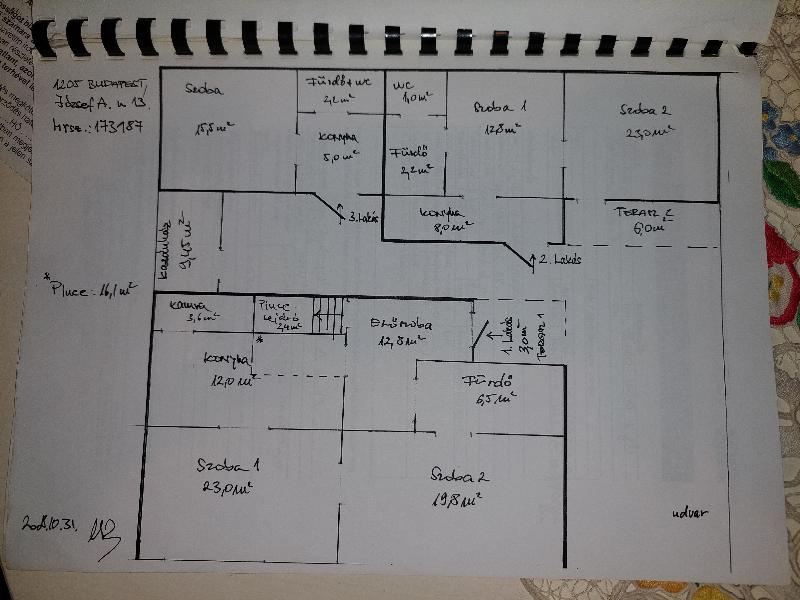 1205 BUDAPEST,
József A. u 13.
Hrsz.: 173187
Szoba
15,5 m²
Fürdő+WC
2,2 m²
Konyha
5,0 m²
WC
1,0 m²
Fürdő
2,2 m²
Szoba 1
12,8 m²
Szoba 2
23,0 m²
Konyha
8,0 m²
TERASZ 2
6,0 m²
3. Lakás
2. Lakás
Kazánház
9,45 m²
* Pince: 16,1 m²
Kamra
3,6 m²
Pince
lejáró
2,4 m²
*
Előszoba
12,8 m²
1. Lakás
3,0 m²
TERASZ 1
Konyha
12,0 m²
Fürdő
6,5 m²
Szoba 1
23,0 m²
Szoba 2
19,8 m²
udvar